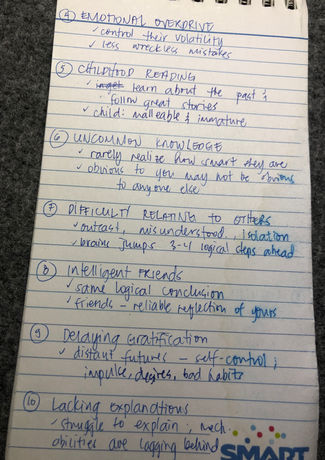 ④ EMOTIONAL OVERDRIVE
✓ control their volatility
✓ less wreckless mistakes
⑤ CHILDHOOD READING
✓ learn about the past &
follow great stories
✓ child: malleable & immature
⑥ UNCOMMON KNOWLEDGE
✓ rarely realize how smart they are
✓ obvious to you may not be obvious
to anyone else
⑦ DIFFICULTY RELATING TO OTHERS
✓ outcast, misunderstood, isolation
✓ brain jumps 3-4 logical steps ahead
⑧ Intelligent Friends
✓ same logical conclusion
✓ friends – reliable reflection of yours
⑨ Delaying Gratification
✓ distant futures – self-control;
impulse, desires, bad habits
⑩ Lacking Explanations
✓ struggle to explain;
abilities are lagging behind
SMART